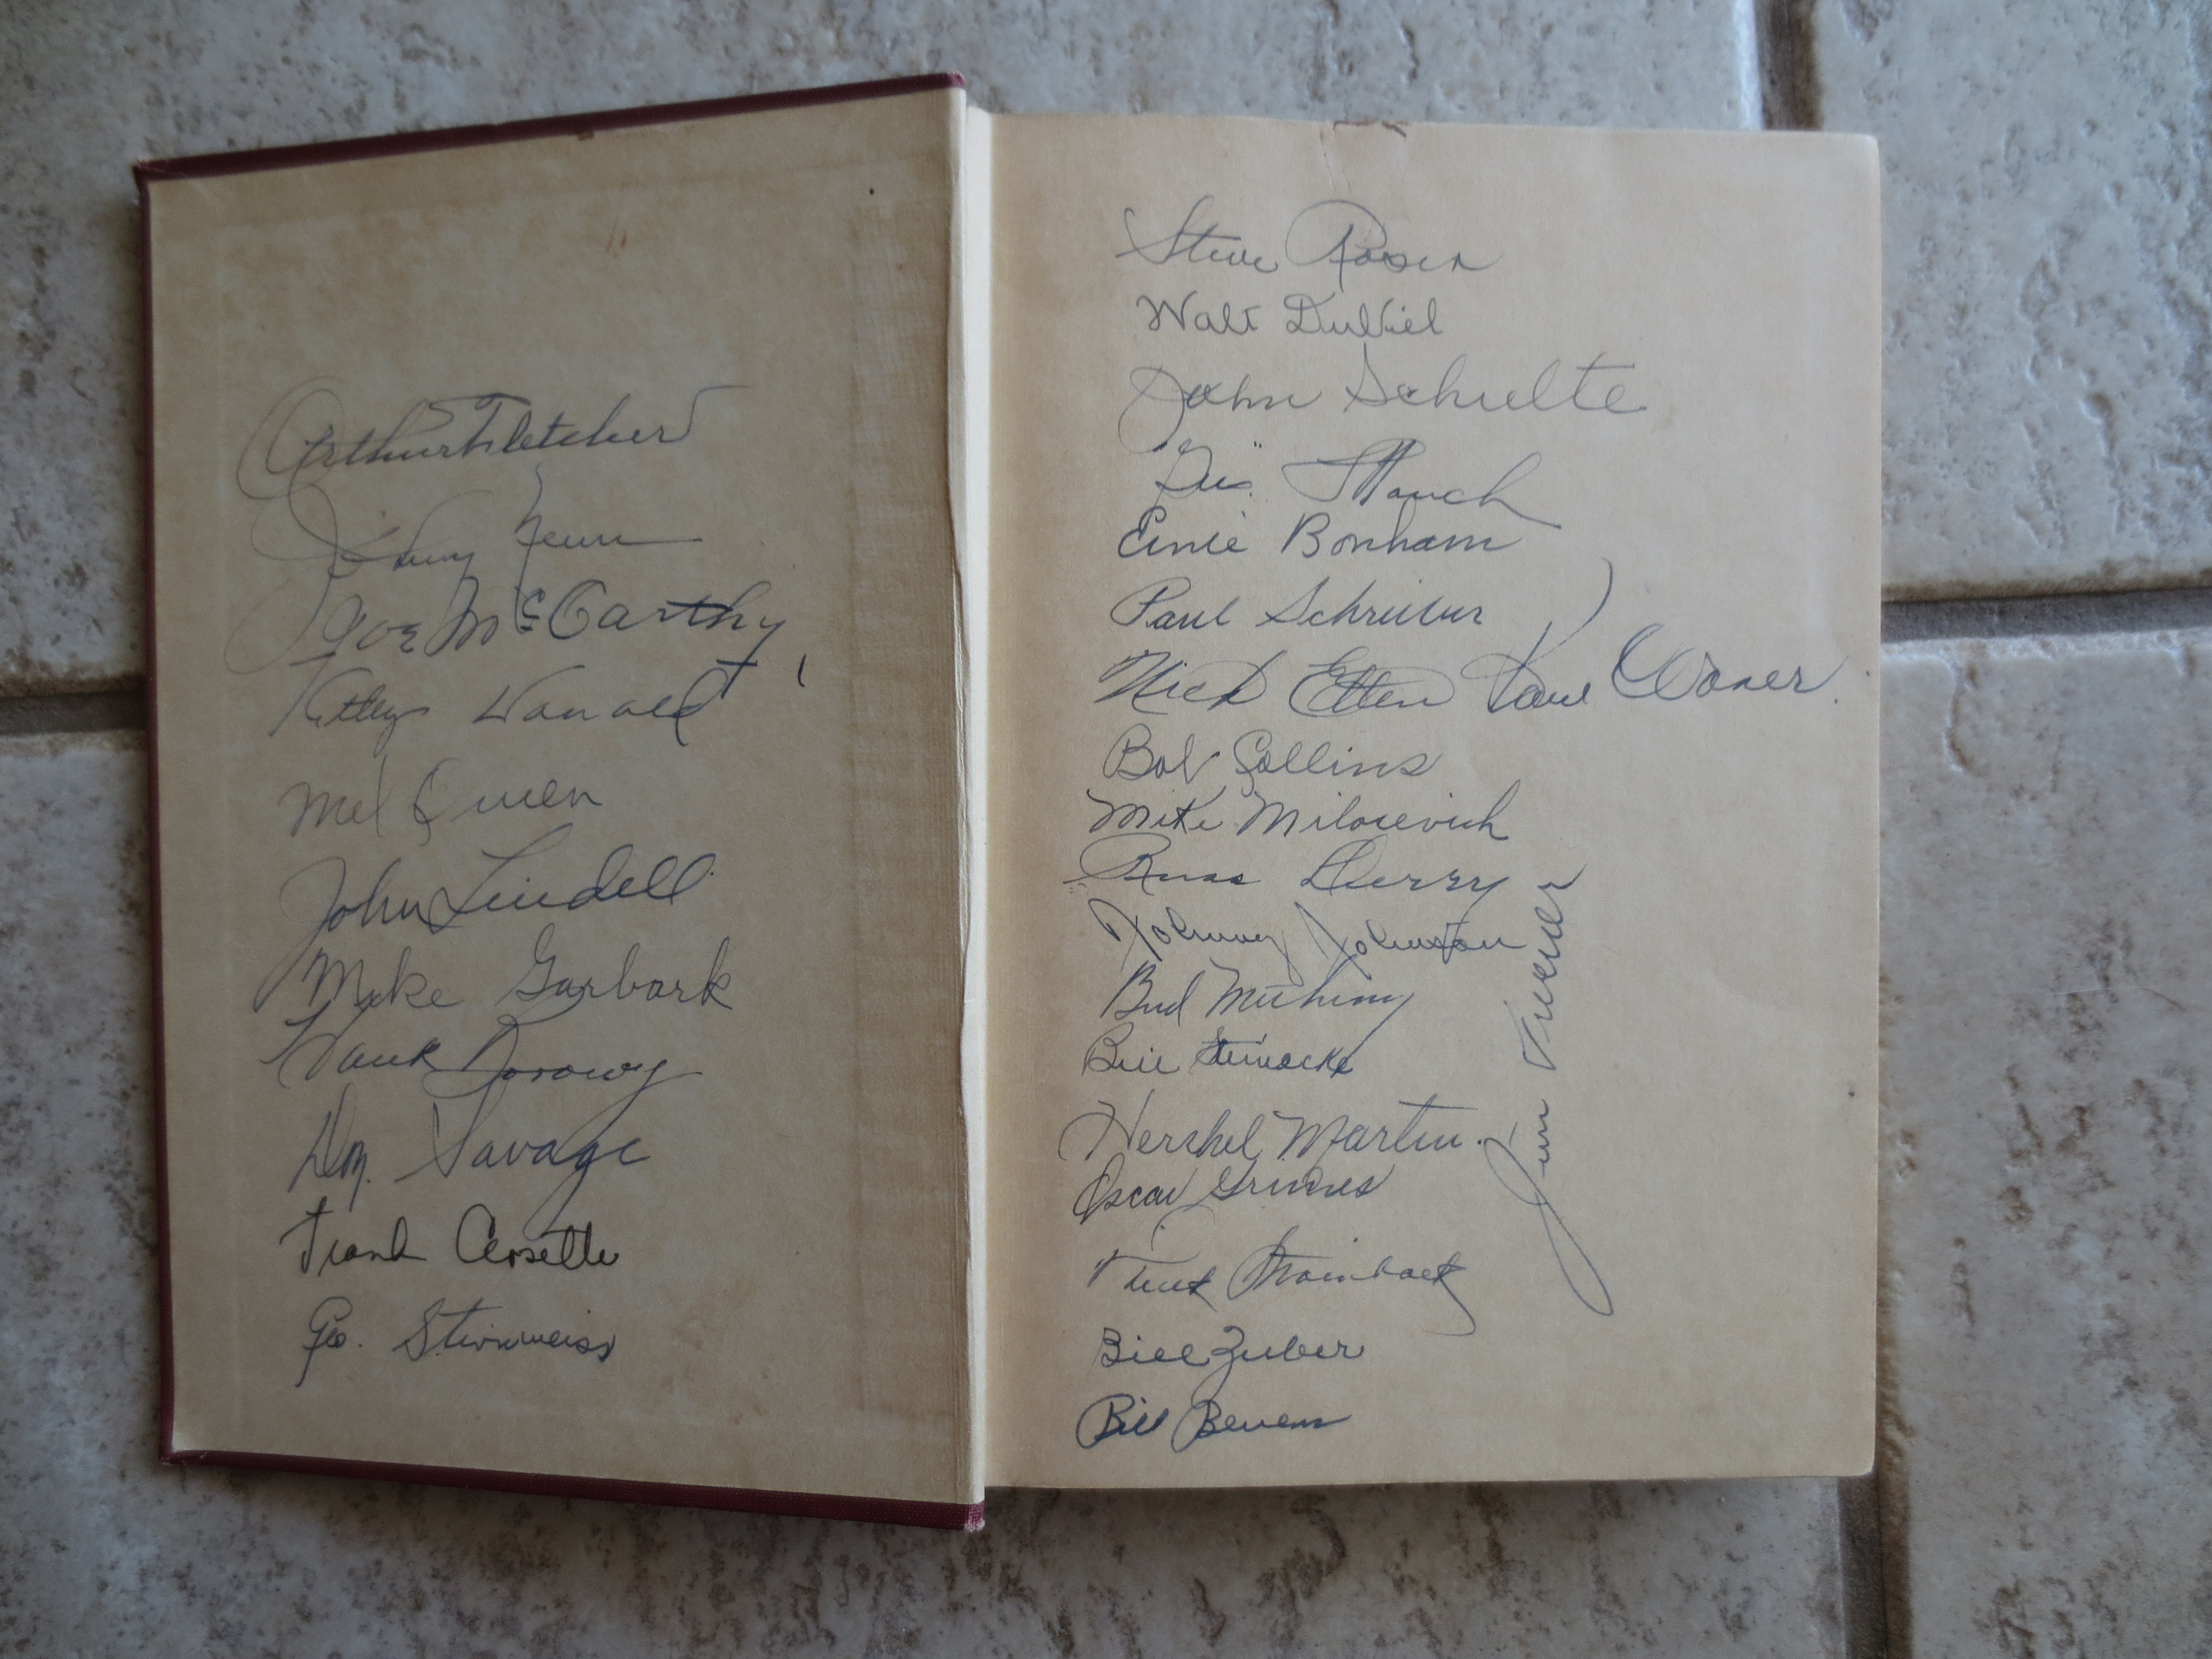 Arthur Fletcher
Johnny Neun
Joe McCarthy
Atley Donald
Mel Queen
John Lindell
Mike Garbark
Hank Borowy
Don Savage
Frank Crosetti
Geo. Stirnweiss
Steve Roser
Walt Dubiel
John Schulte
"Gus" Mauch
Ernie Bonham
Paul Schreiber
Nick Etten Paul Waner
Bob Collins
Mike Milosevich
Russ Derry
Johnny Johnson
Bud Metheny
Bill Steinecke
Hershel Martin
Oscar Grimes
Tuck Stainback
Bill Zuber
Bill Bevens
Jim Turner